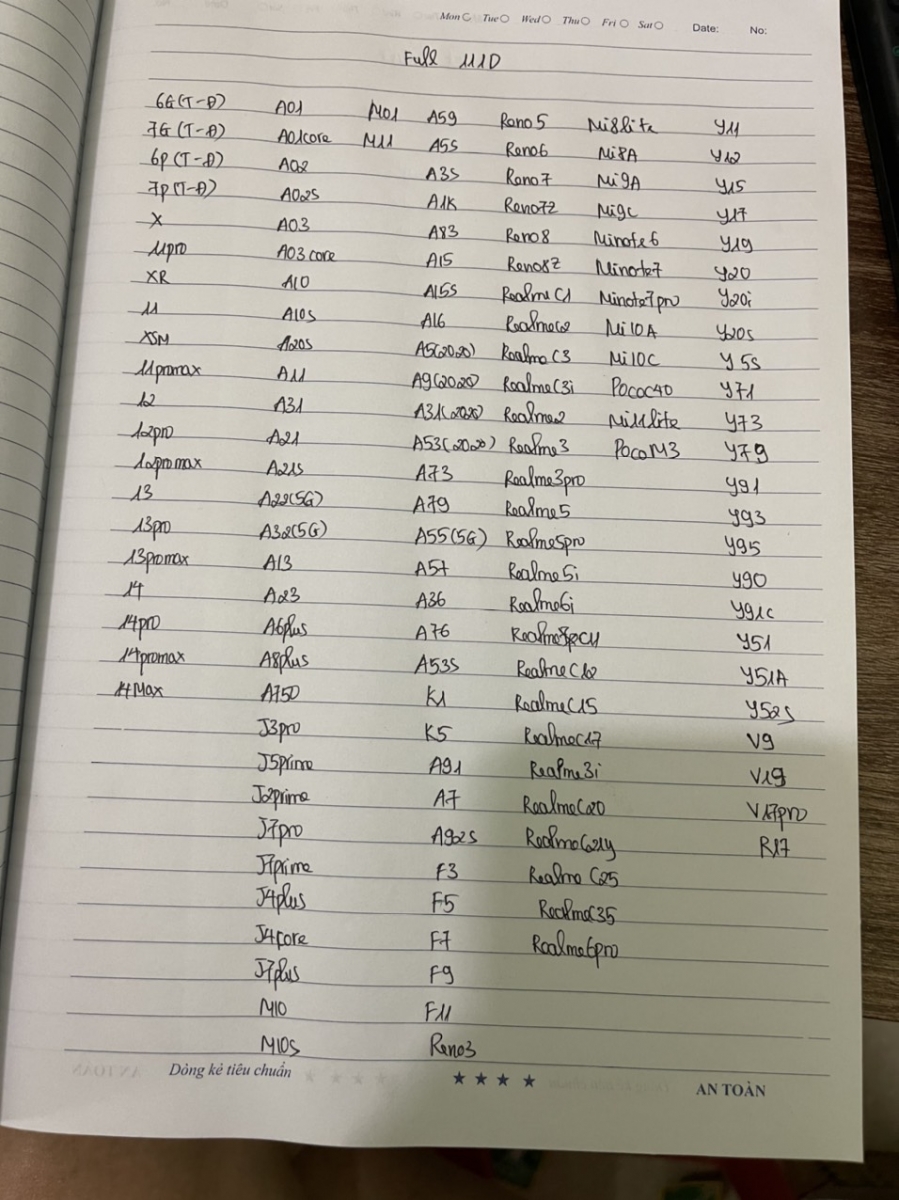 Mon Tue Wed Thu Fri Sat Date: No:
Full 11D
6G(T-Đ) A01 M01 A59 Reno5 Mi8lite Y11
7G(T-Đ) A01core M11 A5S Reno6 Mi8A Y12
6p(T-Đ) A02 A3S Reno7 Mi9A Y15
7p(T-Đ) A02S A1K Reno7Z Mi9C Y17
X A03 A83 Reno8 Minote6 Y19
11pro A03core A15 Reno8Z Minote7 Y20
XR A10 A15S RealmeC1 Minote7pro Y20i
11 A10S A16 RealmeC2 Mi10A Y20S
XSM A20S A5(2020) RealmeC3 Mi10C Y5S
11promax A11 A9(2020) RealmeC3i PocoC40 Y71
12 A31 A31(2020) Realme2 Mi11lite Y73
12pro A21 A53(2020) Realme3 PocoM3 Y79
12promax A21S A73 Realme3pro Y91
13 A22(5G) A79 Realme5 Y93
13pro A32(5G) A55(5G) Realme5pro Y95
13promax A13 A57 Realme5i Y90
14 A23 A36 Realme6i Y91C
14pro A6plus A76 Y51
14promax A8plus A53S RealmeC12 Y51A
14Max A750 K1 RealmeC15 Y52S
J3pro K5 RealmeC17 V9
J5prime A91 Realme3i V19
J2prime A7 RealmeC20 V17pro
J7pro A92S RealmeC21y R17
J7prime F3 Realme C25
J4plus F5 RealmeC35
J4core F7 Realme6pro
J7plus F9
M10 F11
M10S Reno3
Dòng kẻ tiêu chuẩn ★ ★ ★ ★ AN TOÀN